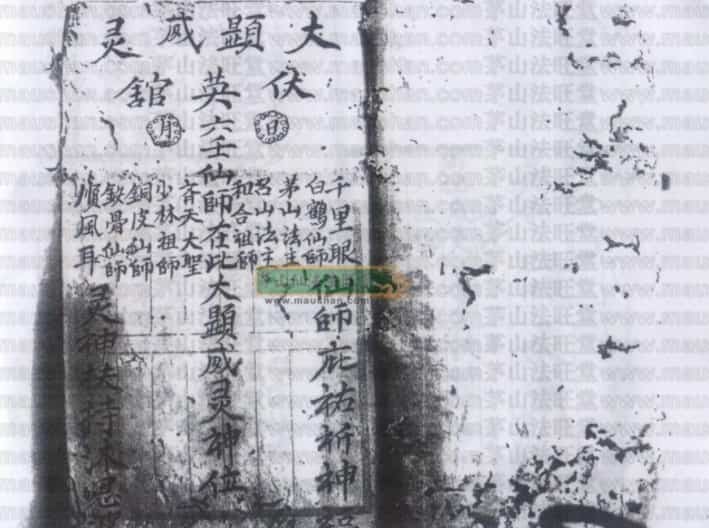 大顯威灵
伏英館
日月
千里眼
白鶴仙師
茅山法主
呂山法主
和合祖師
仙師庇祐祈神
六壬仙師在此大顯威灵神位
齊天大聖
少林祖師
銅皮仙師
鉄骨仙師
順風耳
灵神扶持沐恩
www.maushan.com
茅山法旺堂www.maushan.com